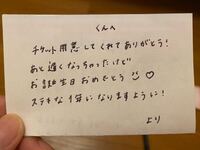 くんへ
チケット用意してくれてありがとう!
あと遅くなっちゃったけど
お誕生日おめでとう
ステキな1年になりますように!
より